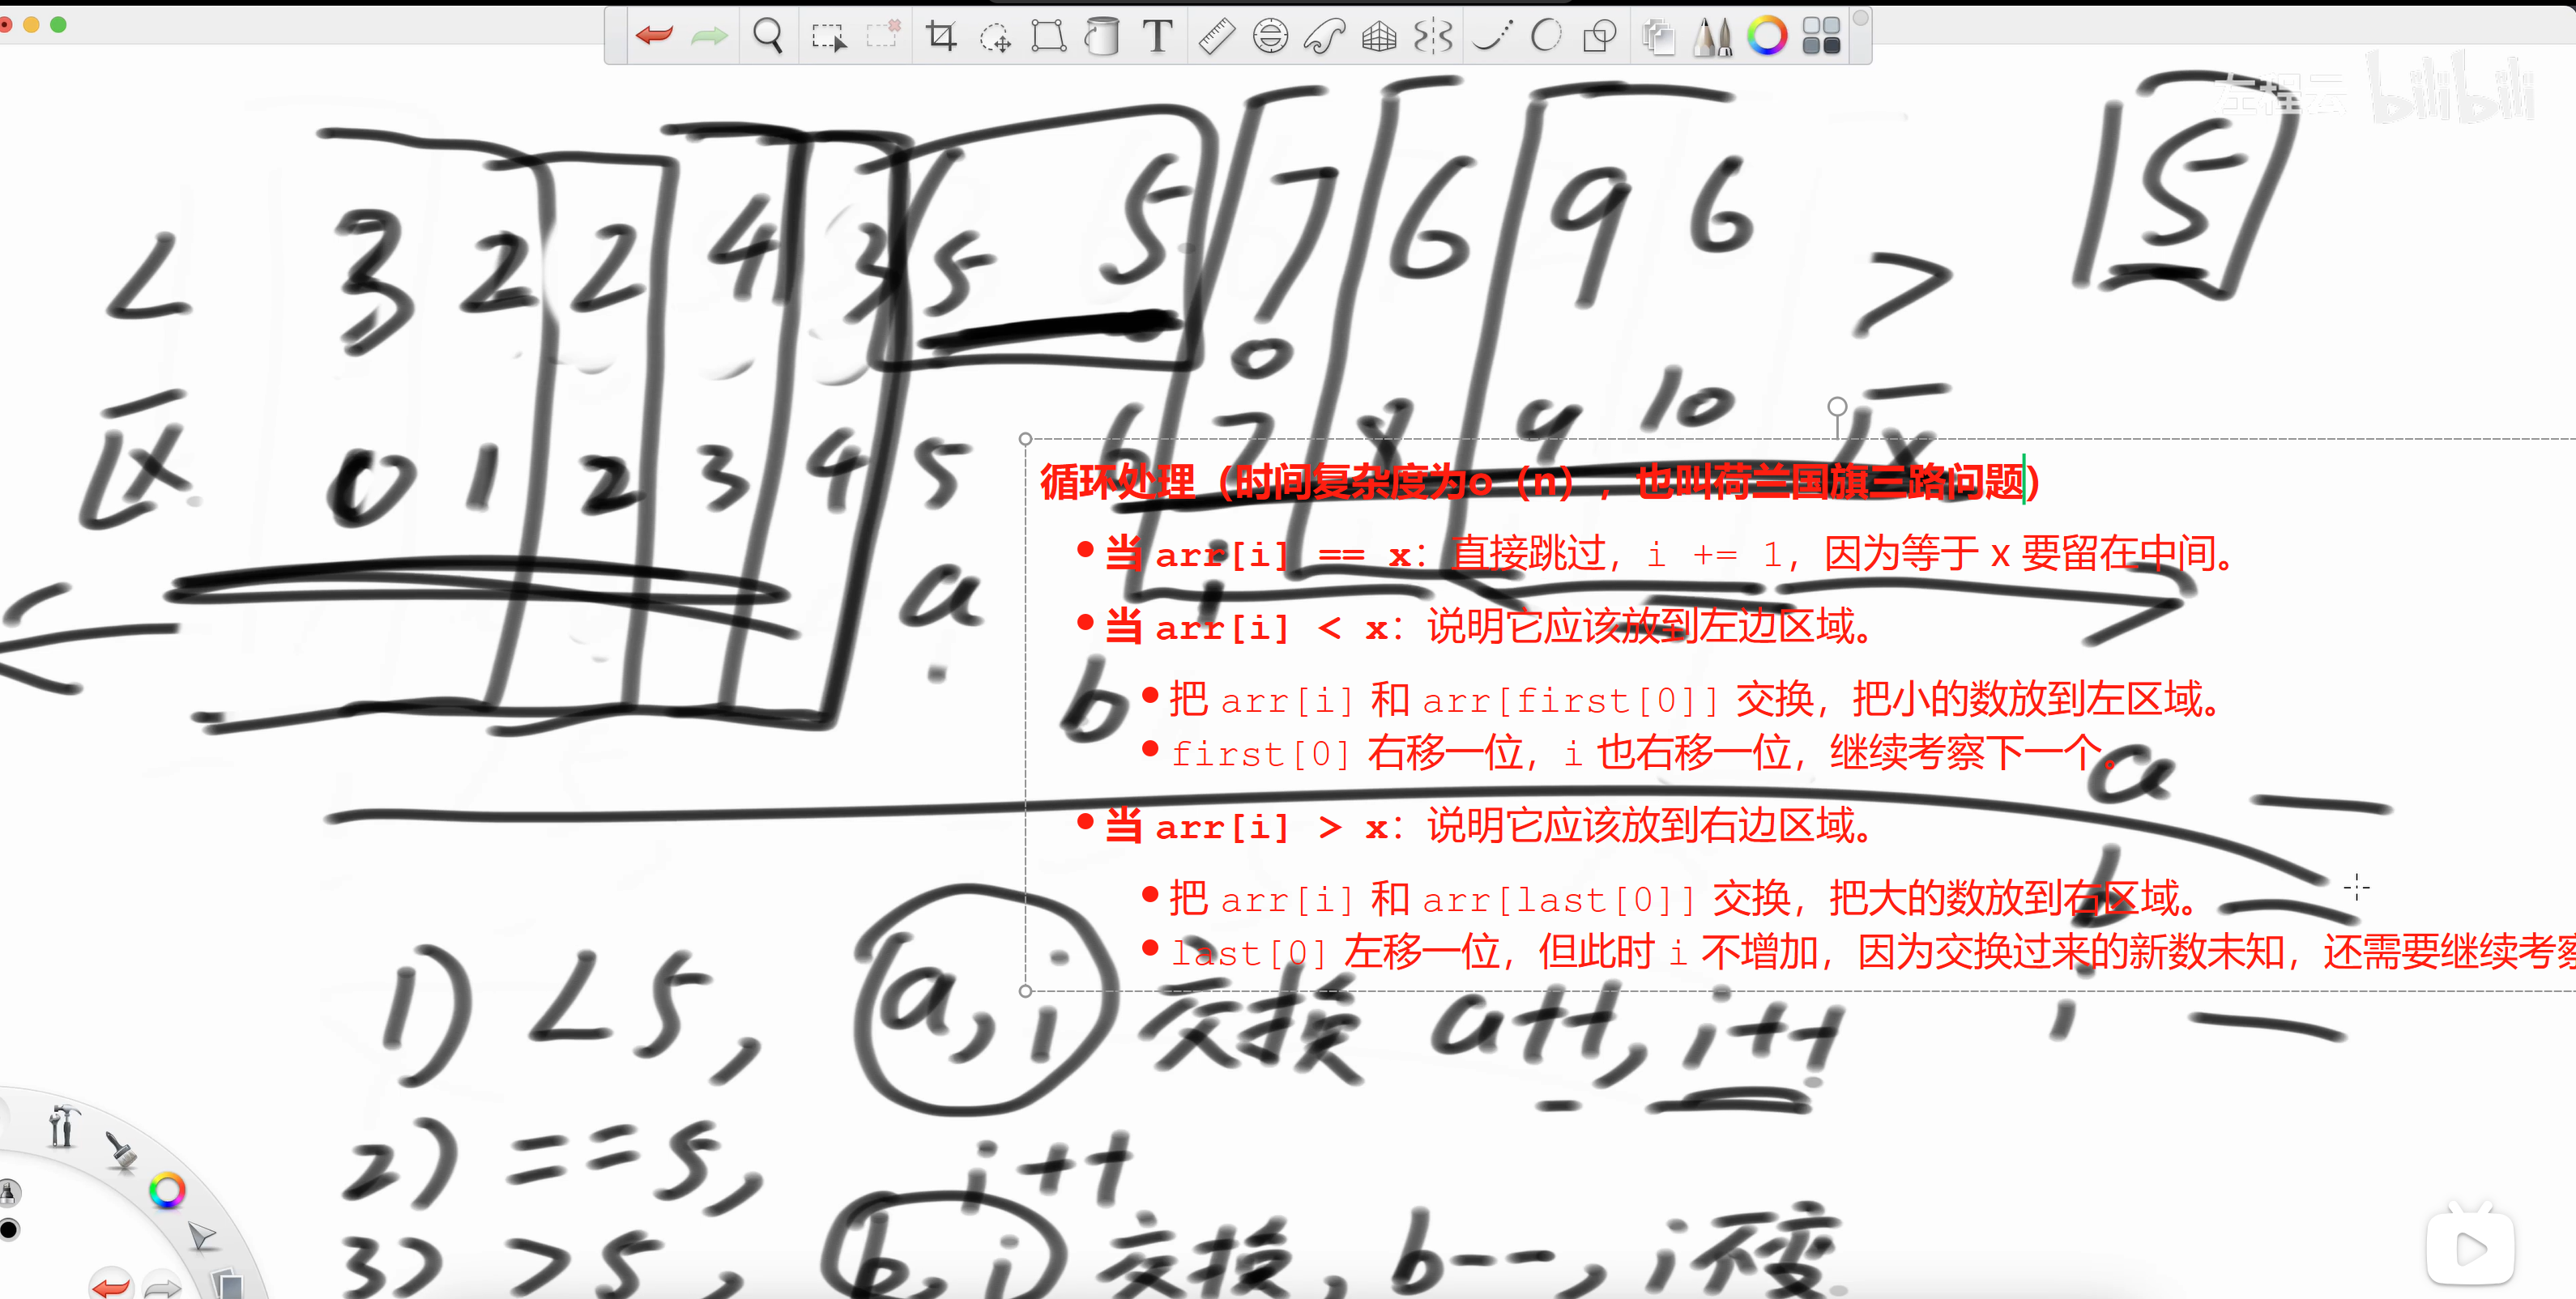 左程云 bilibili
< 3 2 2 4 3 5 5 7 6 9 6 > 5
区 0 1 2 3 4 5 6 7 8 9 10 区
循环处理（时间复杂度为o（n），也叫荷兰国旗三路问题）
当 arr[i] == x：直接跳过，i += 1，因为等于 x 要留在中间。
a i
当 arr[i] < x：说明它应该放到左边区域。
b
把 arr[i] 和 arr[first[0]] 交换，把小的数放到左区域。
first[0] 右移一位，i 也右移一位，继续考察下一个。
a —
当 arr[i] > x：说明它应该放到右边区域。
b —
把 arr[i] 和 arr[last[0]] 交换，把大的数放到右区域。
last[0] 左移一位，但此时 i 不增加，因为交换过来的新数未知，还需要继续考察
i —
1) <5, a, i 交换 a++, i++
2) ==5, i++
3) >5, b, i 交换, b--, i不变